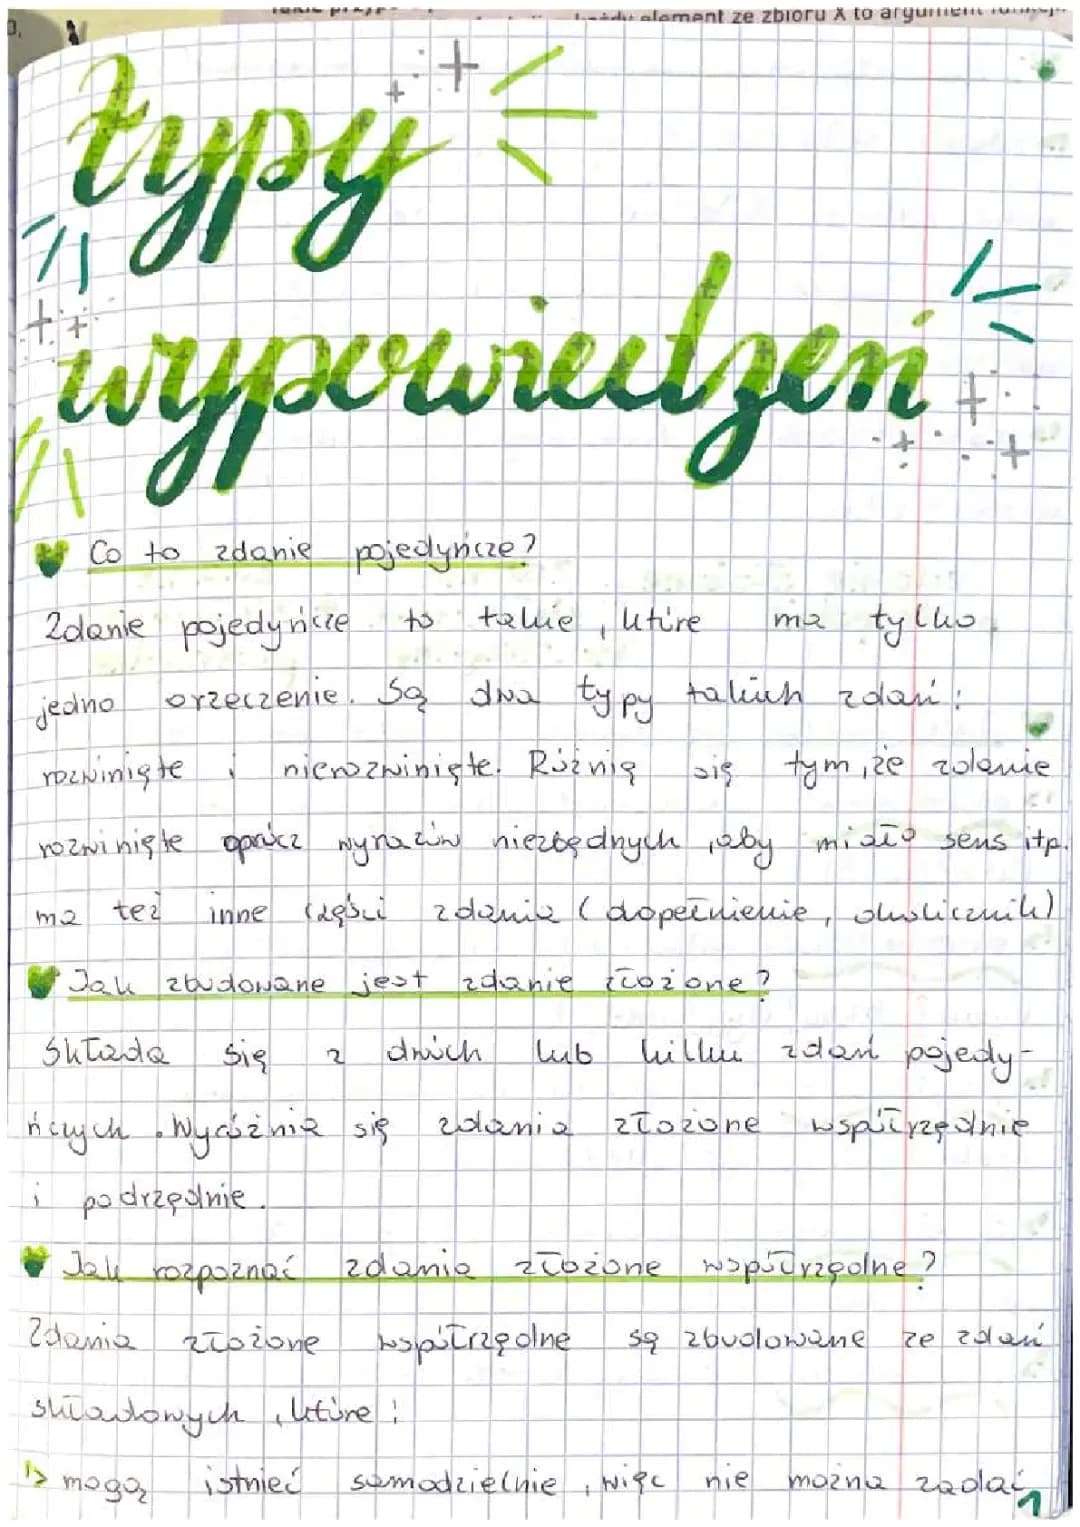 każdy element ze zbioru X to argument
typy
wypowiedzeń
Co to zdanie pojedyńcze?
Zdanie pojedyńcze to takie, które ma tylko
jedno orzeczenie. Są dwa typy takich zdań:
rozwinięte i nierozwinięte. Różnią się tym, że zdanie
rozwinięte oprócz wyrazów niezbędnych, aby miało sens itp.
ma też inne części zdania (dopełnienie, okolicznik)
Jak zbudowane jest zdanie złożone?
Składa się z dwóch lub kilku zdań pojedy-
ńczych. Wyróżnia się zdania złożone współrzędnie
i podrzędnie.
Jak rozpoznać zdania złożone współrzędne?
Zdania złożone współrzędne są zbudowane ze zdań
składowych, które:
1> mogą istnieć samodzielnie, więc nie można zadać
1